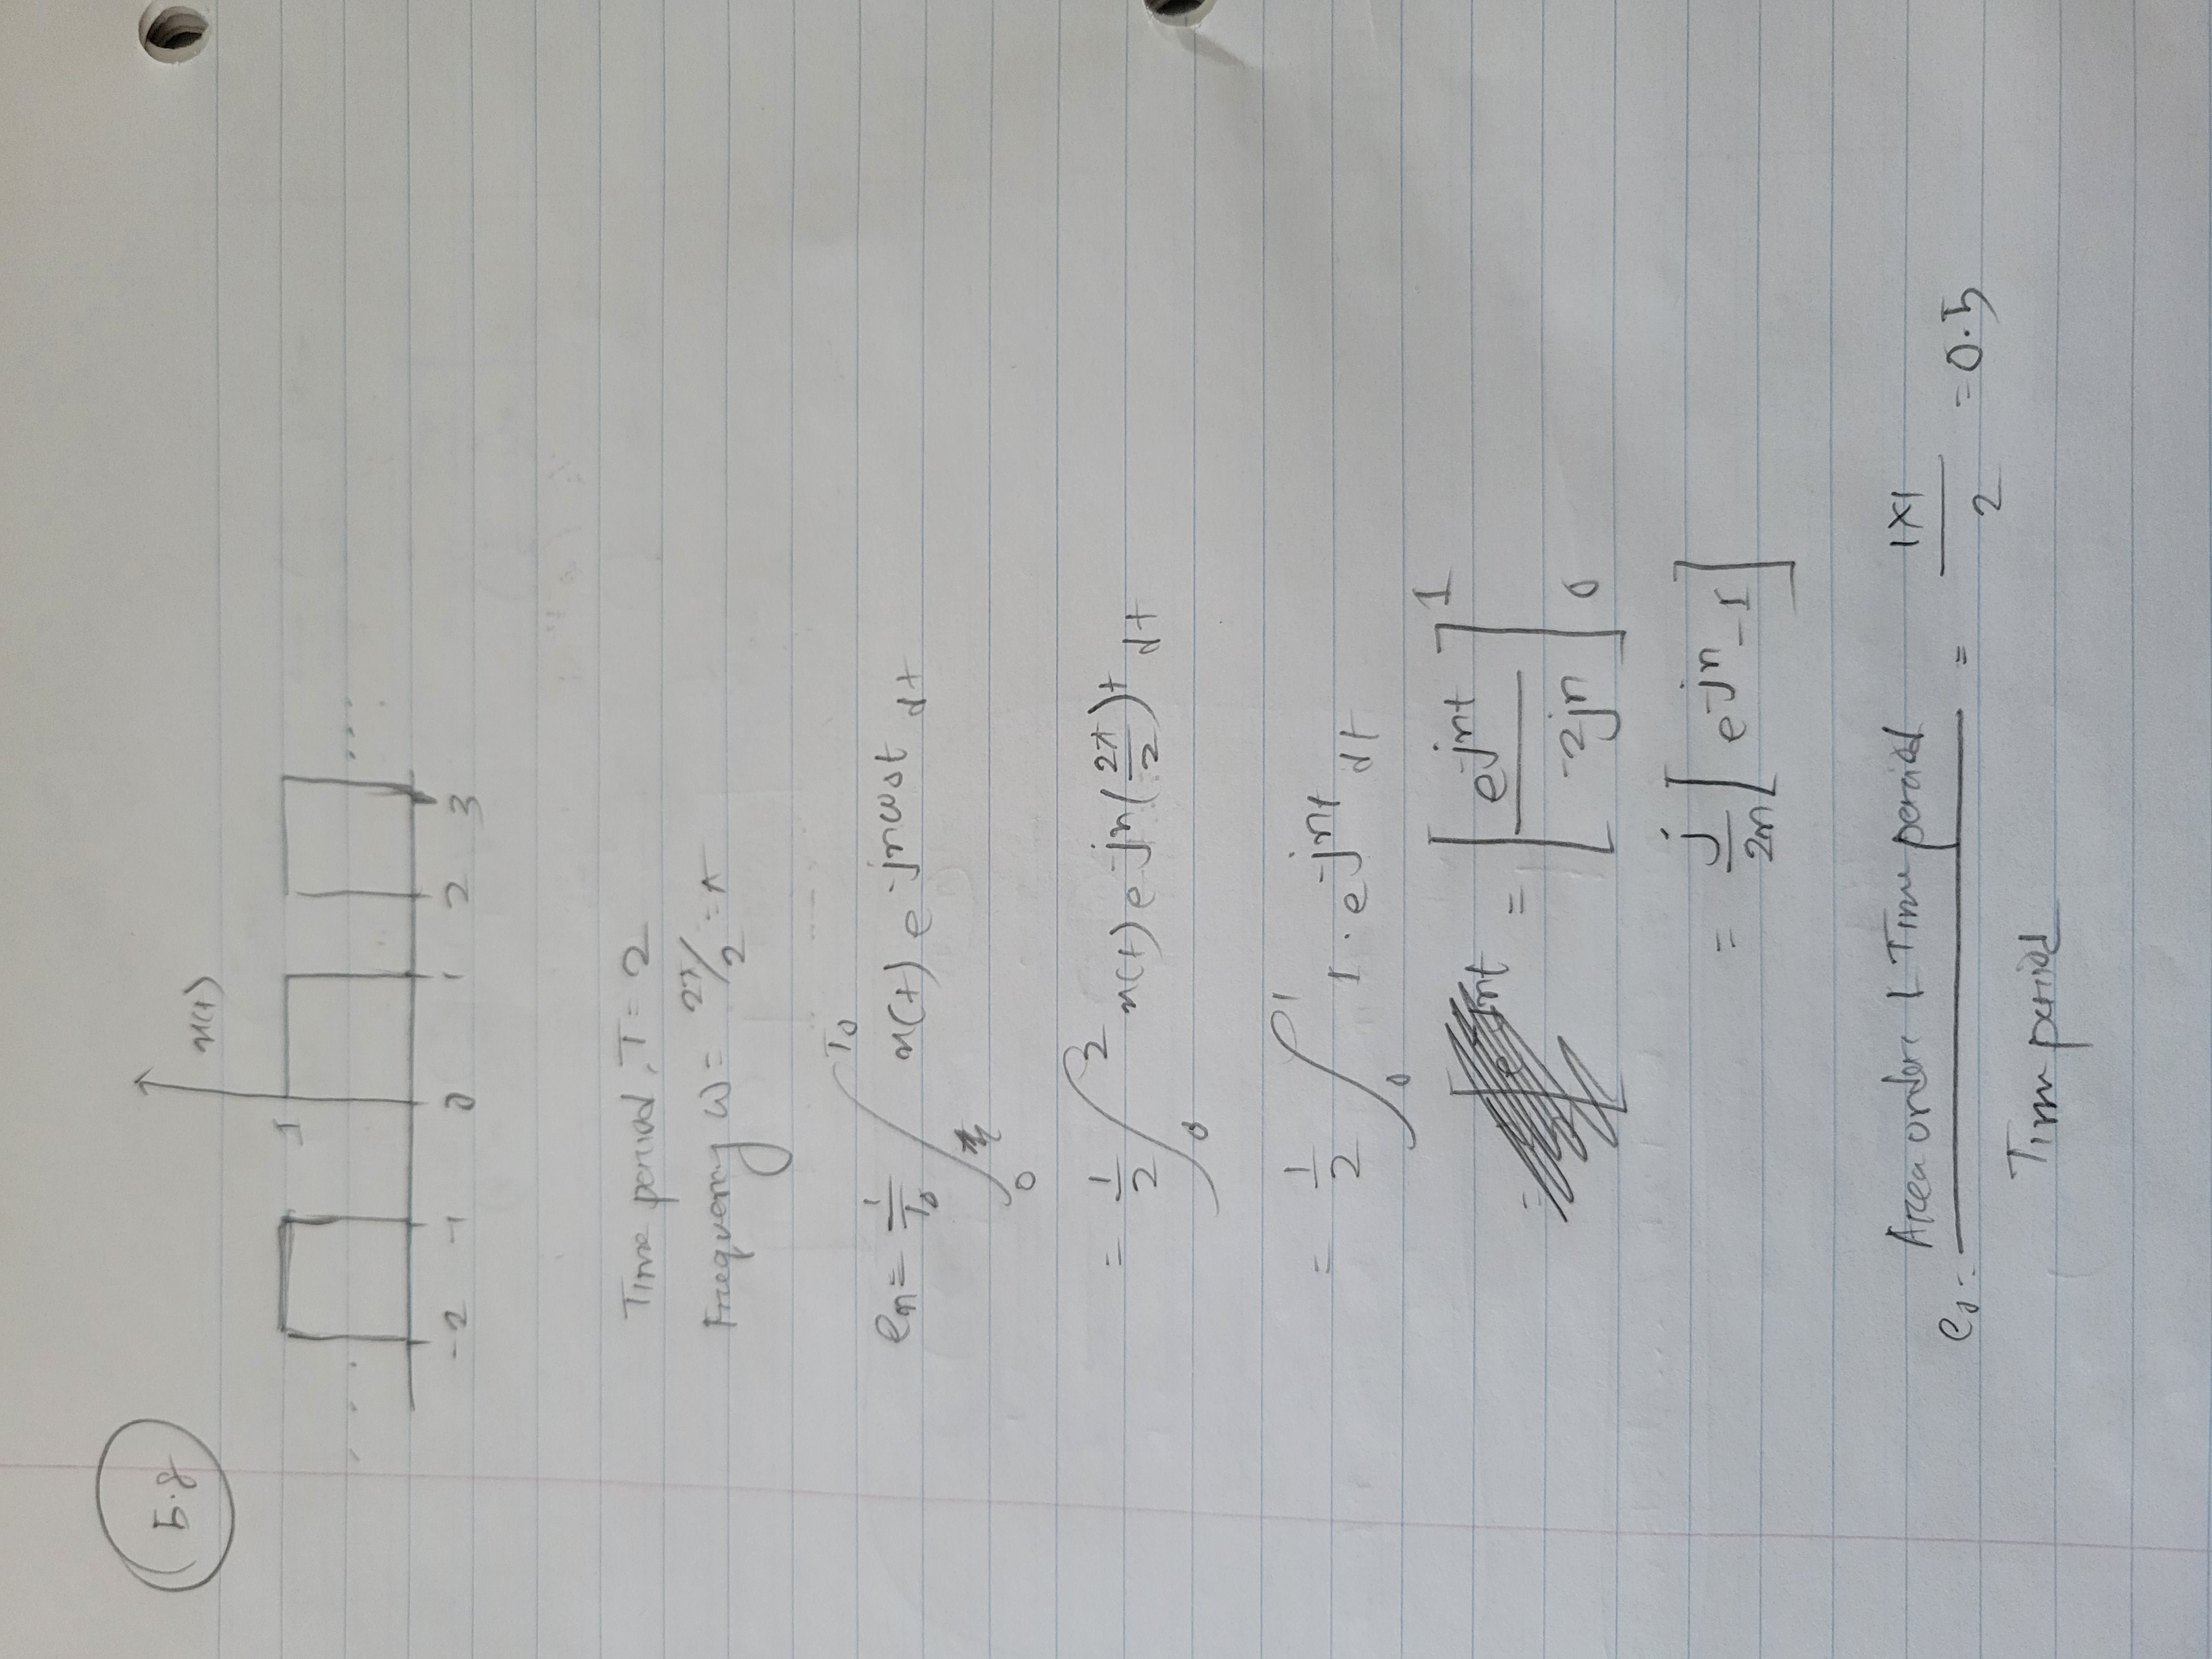 5.8
x(t)
1
.... ...
-2 -1 0 1 2 3
Time period, T = 2
Frequency ω = 2π/2 = π
en = 1/T0 ∫_0^T0 x(t) e^-jnω0t dt
= 1/2 ∫_0^2 x(t) e^-jn(2π/2)t dt
= 1/2 ∫_0^1 1 · e^-jnt dt
= [ e^-jnt / -2jn ]_0^1
= j/2n [ e^-jn - 1 ]
e0 = Area under 1 Time period / Time period = 1×1 / 2 = 0.5